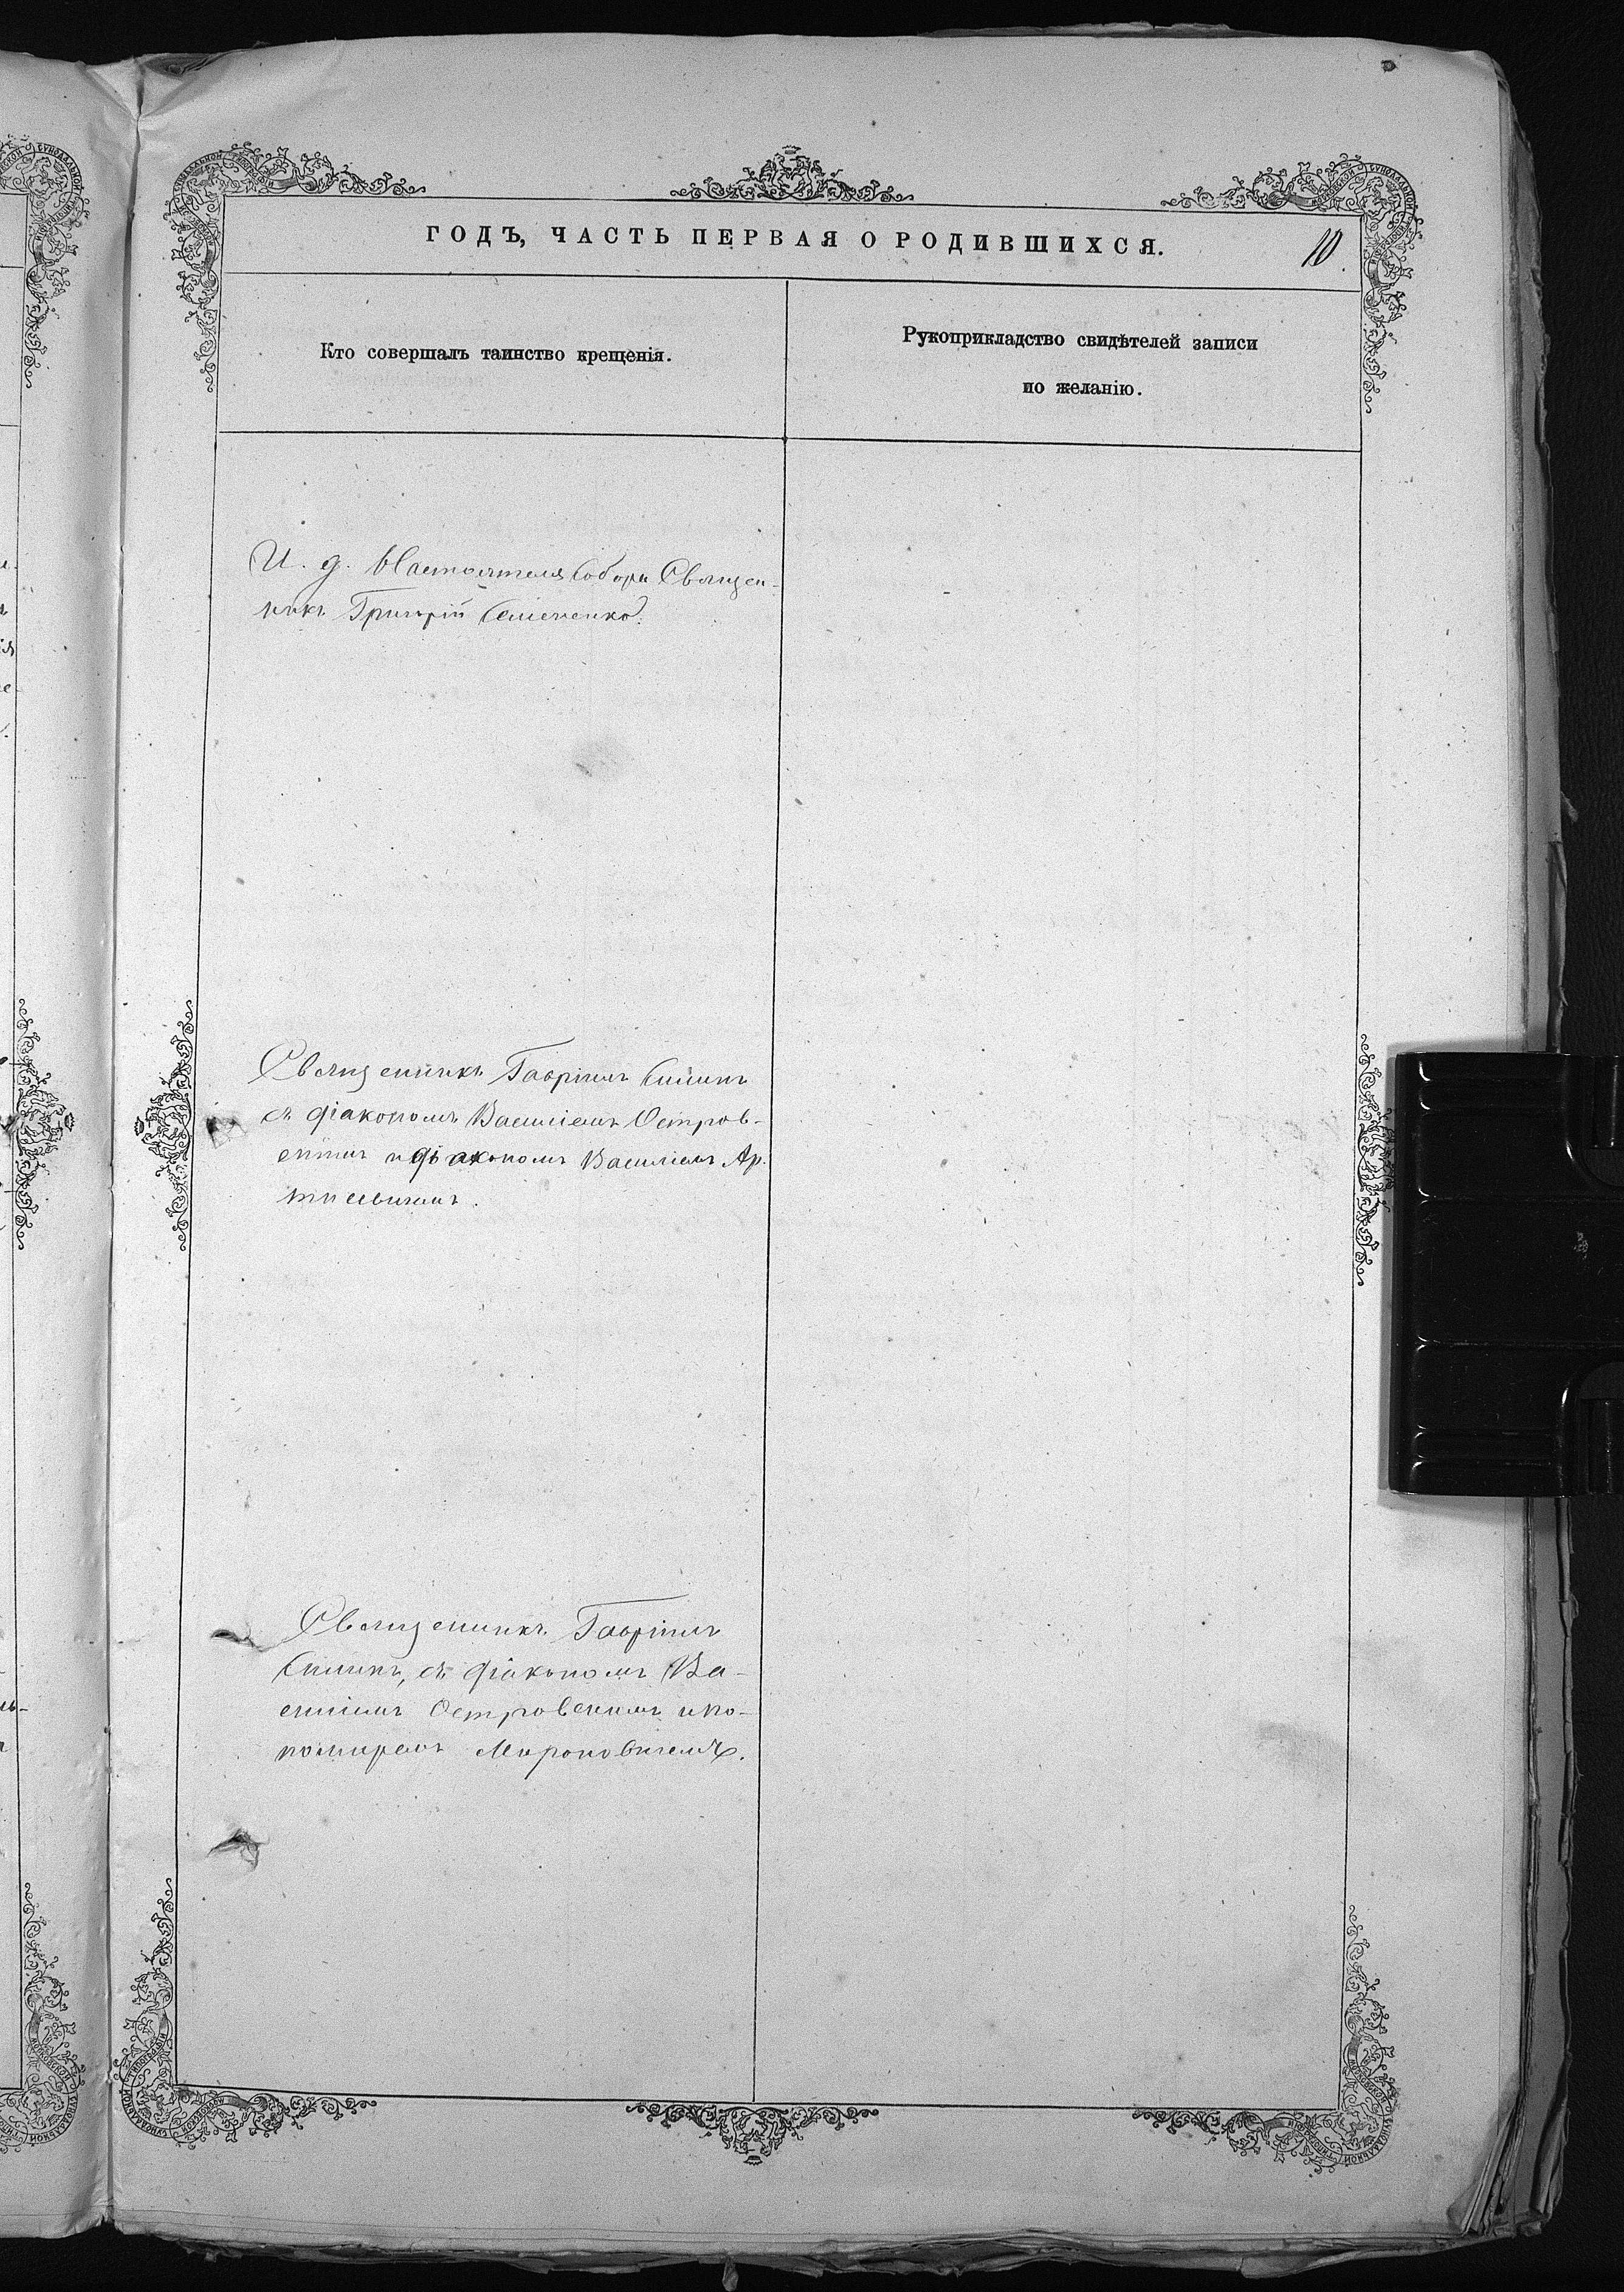 ГОДЪ, ЧАСТЬ ПЕРВАЯ О РОДИВШИХСЯ.
10
Кто совершалъ таинство крещенія.
Рукоприкладство свидѣтелей записи
по желанію.
И. д. Настоятеля Собора Священ-
никъ Григорій Семененко.
Священикъ Гавріилъ
съ діакономъ Василіемъ Островс-
кимъ и діакономъ Василіемъ Ар-
Священикъ Гавріилъ
съ діакономъ Ва-
силіемъ Островскимъ и по-
номаремъ Мироновичемъ.